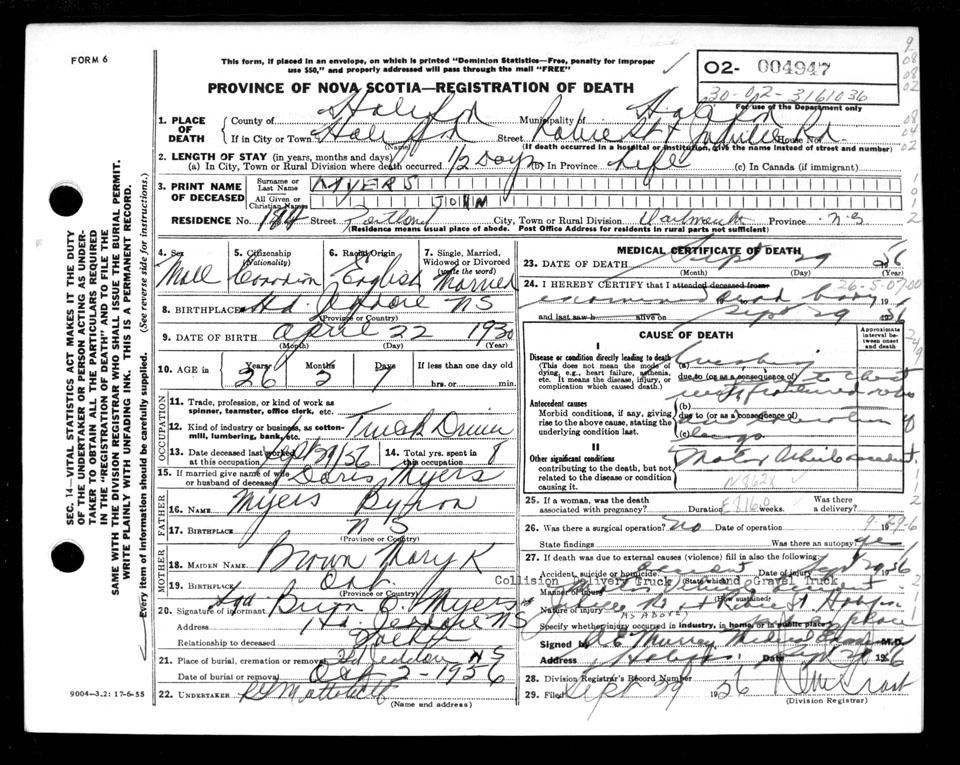 FORM 6
This form, if placed in an envelope, on which is printed "Dominion Statistics—Free, penalty for improper
use $50," and properly addressed will pass through the mail "FREE"
O2- 004947
30-02-3161036
For use of the Department only
PROVINCE OF NOVA SCOTIA—REGISTRATION OF DEATH
1. PLACE OF DEATH
County of Halifax Municipality of Halifax
If in City or Town Halifax Street Robie St & Rd House No.
(Name) (If death occurred in a hospital or institution, give the name instead of street and number)
2. LENGTH OF STAY (in years, months and days)
(a) In City, Town or Rural Division where death occurred 1/2 Day (b) In Province Life (c) In Canada (if immigrant)
3. PRINT NAME OF DECEASED
Surname or Last Name MYERS
All Given or Christian Names JOHN
RESIDENCE No. 184 Street Portland City, Town or Rural Division Dartmouth Province N.S
(Residence means usual place of abode. Post Office Address for residents in rural parts not sufficient)
4. Sex Male
5. Citizenship (Nationality) Canadian
6. Racial Origin English
7. Single, Married, Widowed or Divorced (write the word) Married
8. BIRTHPLACE Hd. Jeddore NS
(Province or Country)
9. DATE OF BIRTH April 22 1930
(Month) (Day) (Year)
10. AGE in Years 26 Months 5 Days 7 If less than one day old
hrs. or min.
OCCUPATION
11. Trade, profession, or kind of work as
spinner, teamster, office clerk, etc.
12. Kind of industry or business, as cotton-
mill, lumbering, bank, etc. Truck Driver
13. Date deceased last worked at this occupation Sept/29/56
14. Total yrs. spent in this occupation 8
15. If married give name of wife or husband of deceased Doris Myers
FATHER
16. NAME Myers Byron
17. BIRTHPLACE N S
(Province or Country)
MOTHER
18. MAIDEN NAME Brown Mary K
19. BIRTHPLACE
(Province or Country)
20. Signature of informant Sgd. Myers
Address Hd. Jeddore NS
Relationship to deceased Father
21. Place of burial, cremation or removal Hd Jeddore N S
Date of burial or removal Oct 2-1956
22. UNDERTAKER
(Name and address)
9004—3.2: 17-6-55
SEC. 14—VITAL STATISTICS ACT MAKES IT THE DUTY
OF THE UNDERTAKER OR PERSON ACTING AS UNDER-
TAKER TO OBTAIN ALL THE PARTICULARS REQUIRED
IN THE "REGISTRATION OF DEATH" AND TO FILE THE
SAME WITH THE DIVISION REGISTRAR WHO SHALL ISSUE THE BURIAL PERMIT.
WRITE PLAINLY WITH UNFADING INK. THIS IS A PERMANENT RECORD.
Every item of information should be carefully supplied. (See reverse side for instructions.)
MEDICAL CERTIFICATE OF DEATH
23. DATE OF DEATH Sept 29 1956
(Month) (Day) (Year)
26-5-07.00
24. I HEREBY CERTIFY that I attended deceased from
examined dead body 19
and last saw h alive on Sept 29 1956
CAUSE OF DEATH
Approximate interval between onset and death
I
Disease or condition directly leading to death
(This does not mean the mode of
dying, e.g., heart failure, asthenia,
etc. It means the disease, injury, or
complication which caused death.)
(a) Crushing
due to (or as a consequence of) to chest
with fractured ribs
Antecedent causes
Morbid conditions, if any, giving
rise to the above cause, stating the
underlying condition last.
(b)
due to (or as a consequence of)
(c) lungs
II
Other significant conditions
contributing to the death, but not
related to the disease or condition
causing it.
Motor Vehicle accident
N862X
25. If a woman, was the death associated with pregnancy? Duration weeks. Was there a delivery?
E8160
26. Was there a surgical operation? No Date of operation 19
State findings Was there an autopsy? yes
27. If death was due to external causes (violence) fill in also the following:
Accident, suicide or homicide Accident Date of injury Sept 29 1956
(State which)
Collision Delivery Truck and Gravel Truck
Manner of injury
(How sustained)
Nature of injury AS ABOVE
Specify whether injury occurred in industry, in home, or in public place
Signed by Murray Medical Examiner M.D.
Address Halifax Date Sept 29 1956
28. Division Registrar's Record Number
29. Filed Sept 29 1956
(Division Registrar)